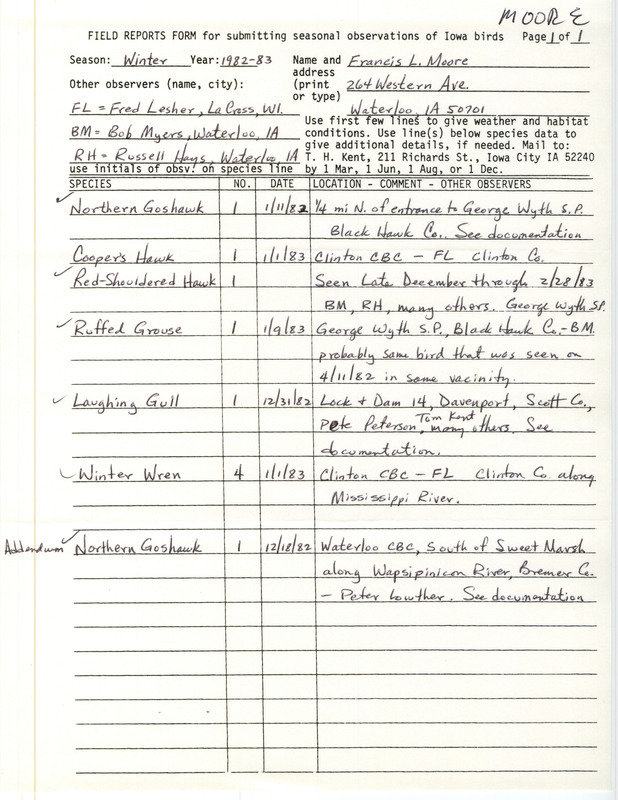 MOORE
FIELD REPORTS FORM for submitting seasonal observations of Iowa birds Page 1 of 1
Season: Winter Year: 1982-83 Name and Francis L. Moore
address
Other observers (name, city): (print 264 Western Ave.
or type)
FL = Fred Lesher, La Cross, WI. Waterloo, IA 50701
Use first few lines to give weather and habitat
BM = Bob Myers, Waterloo, IA conditions. Use line(s) below species data to
give additional details, if needed. Mail to:
RH = Russell Hays, Waterloo, IA T. H. Kent, 211 Richards St., Iowa City IA 52240
use initials of obsv. on species line by 1 Mar, 1 Jun, 1 Aug, or 1 Dec.
SPECIES NO. DATE LOCATION - COMMENT - OTHER OBSERVERS
✓ Northern Goshawk 1 1/11/82 1/4 mi N. of entrance to George Wyth S.P.
Black Hawk Co. See documentation
Cooper's Hawk 1 1/1/83 Clinton CBC - FL Clinton Co.
✓ Red-Shouldered Hawk 1 Seen Late December through 2/28/83
BM, RH, many others. George Wyth S.P.
✓ Ruffed Grouse 1 1/9/83 George Wyth S.P., Black Hawk Co. - BM.
probably same bird that was seen on
4/11/82 in same vacinity.
✓ Laughing Gull 1 12/31/82 Lock + Dam 14, Davenport, Scott Co.,
Pete Peterson, Tom Kent, many others. See
documentation.
✓ Winter Wren 4 1/1/83 Clinton CBC - FL Clinton Co. along
Mississippi River.
Addendum ✓ Northern Goshawk 1 12/18/82 Waterloo CBC, South of Sweet Marsh
along Wapsipinicon River, Bremer Co.
- Peter Lowther. See documentation